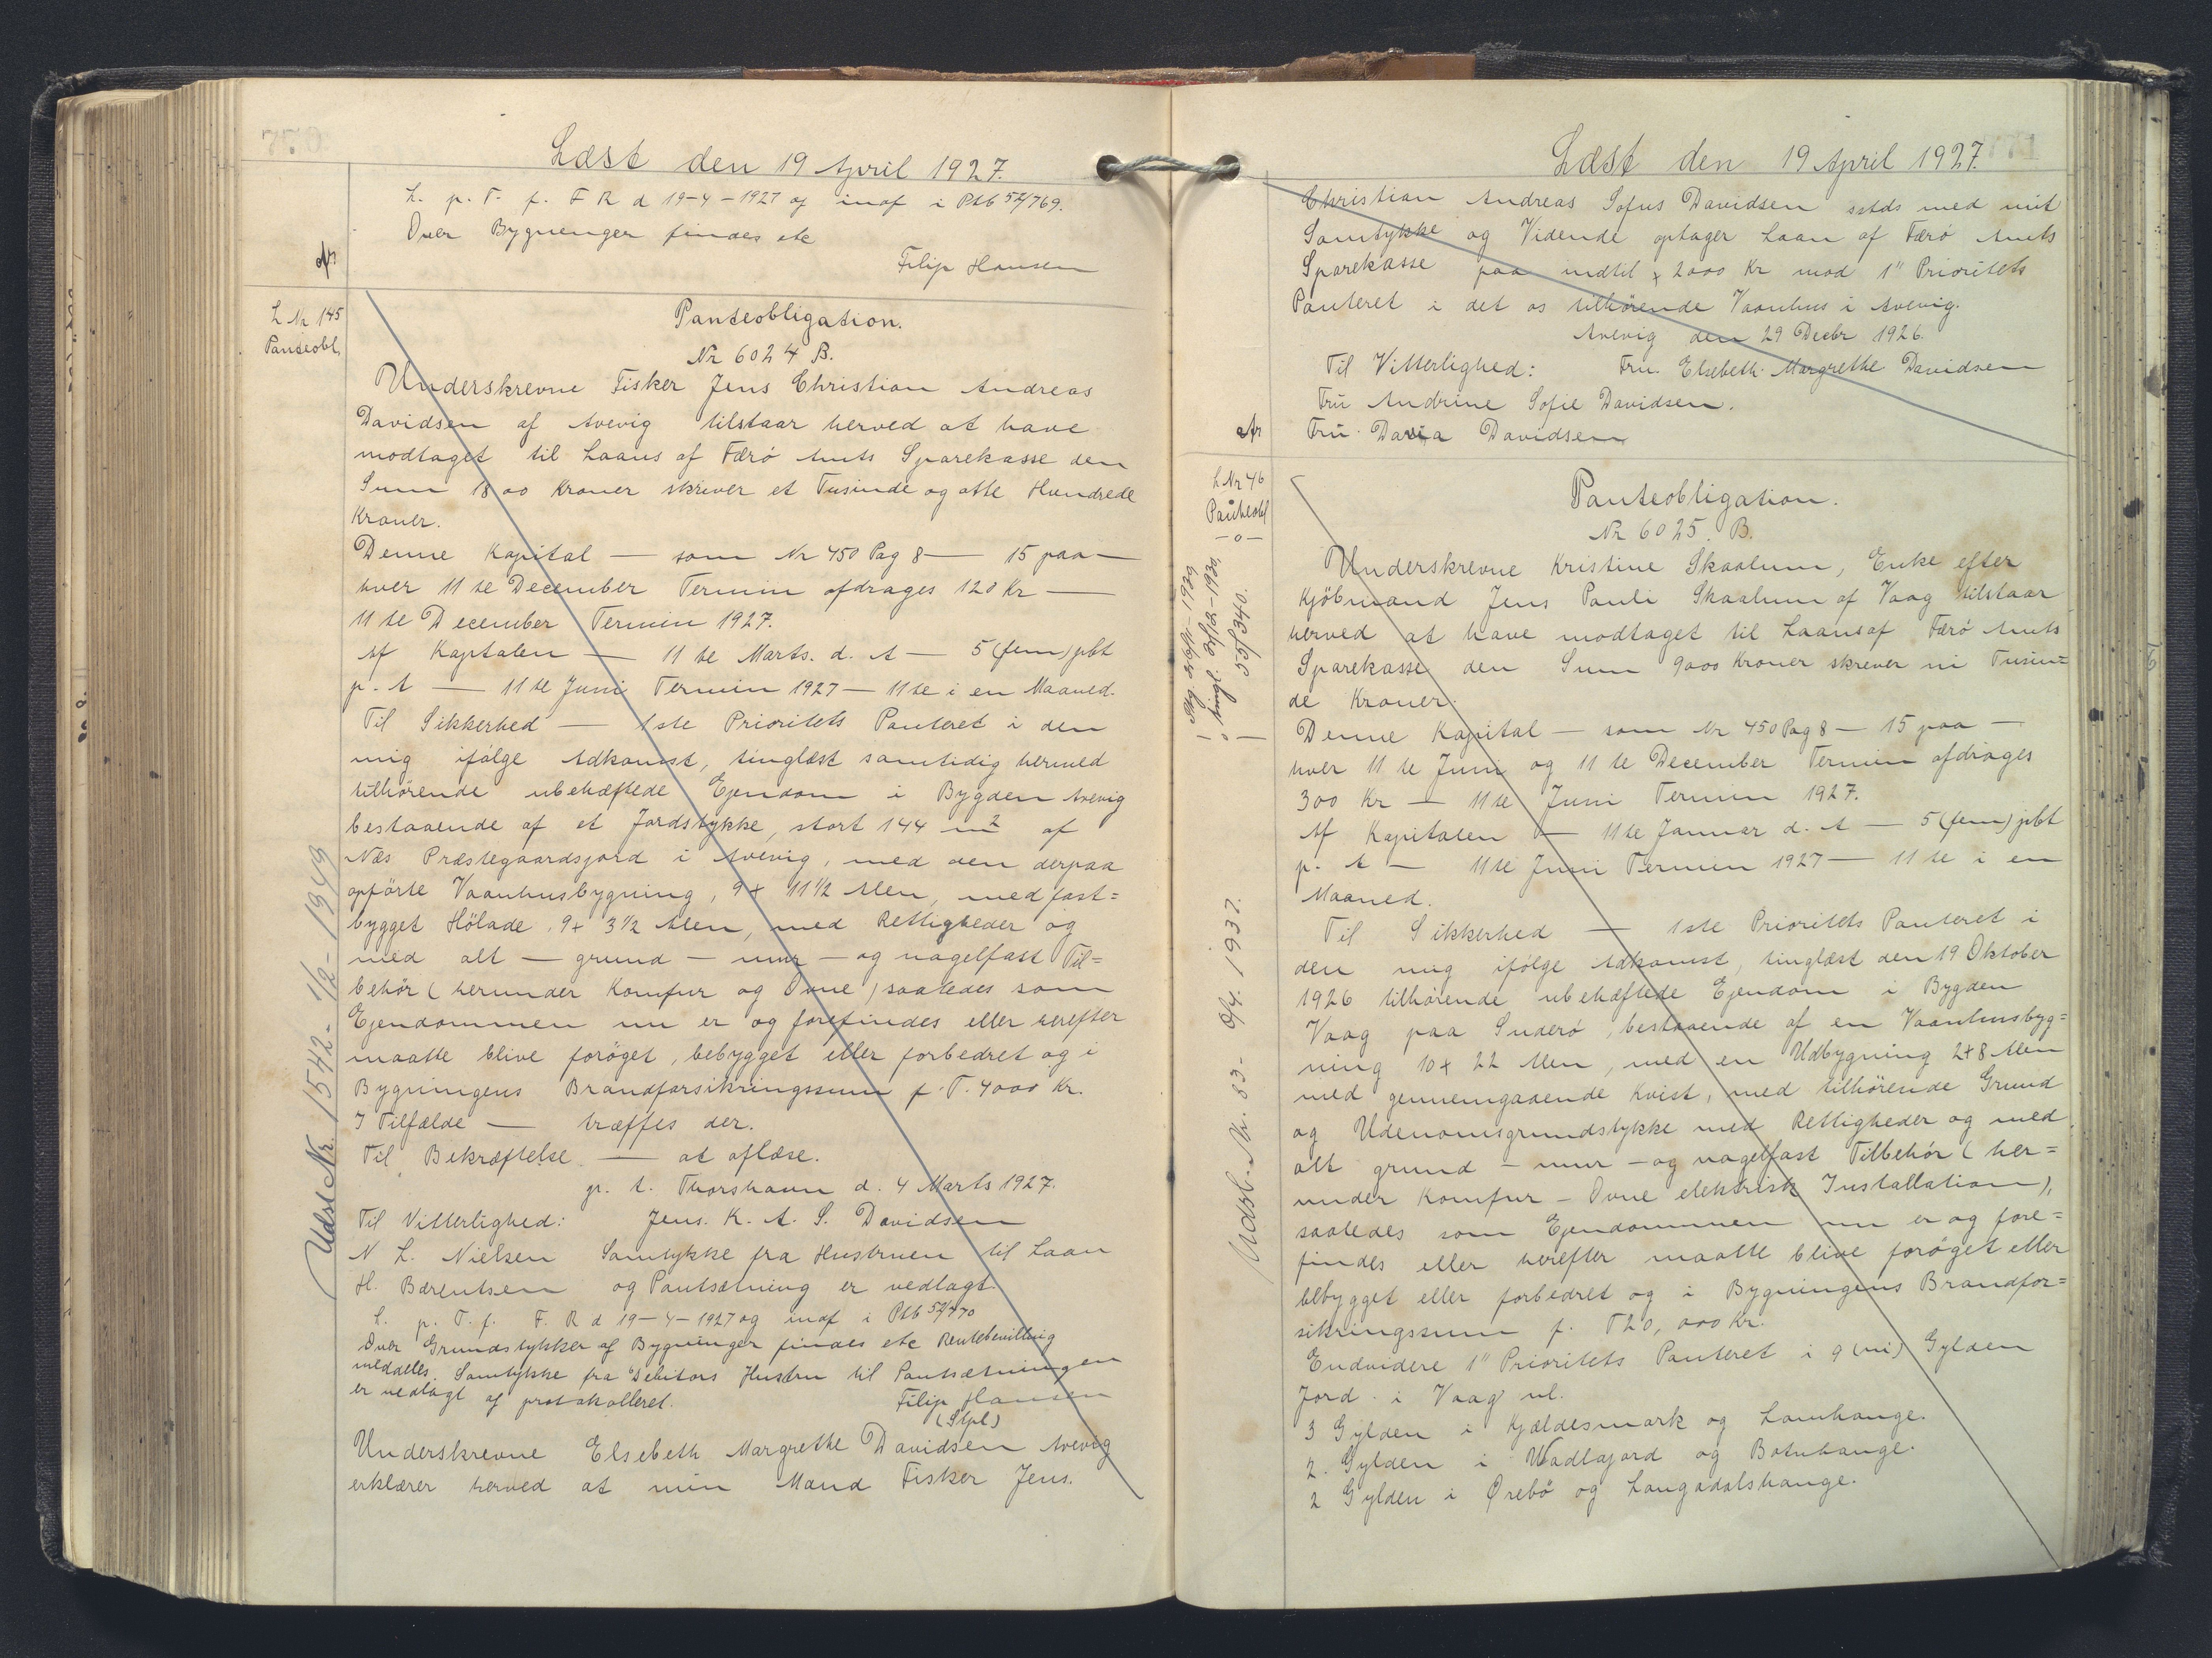 770
Læst den 19 April 1927.
L. p. T. f. F R d 19-4-1927 og indf i Ptb 52/769.
Over Bygninger findes etc
Filip Hansen
L Nr 145
Panteobl
Panteobligation.
Nr 6024 B.
Underskrevne Fisker Jens Christian Andreas
Davidsen af Avevig tilstaar herved at have
modtaget til Laans af Færö Amts Sparekasse den
Sum 1800 Kroner skriver et Tusinde og otte Hundrede
Kroner.
Denne Kapital — som Nr 450 Pag 8 — 15 paa —
hver 11 te December Termin afdrages 120 Kr —
11 te December Termin 1927.
Af Kapitalen — 11 te Marts. d. A — 5 (fem) pbt
p. A — 11 te Juni Termin 1927 — 11 te i en Maaned.
Til Sikkerhed — 1ste Prioritets Panteret i den
mig ifølge Adkomst, tinglæst samtidig hermed
tilhörende ubehæftede Ejendom i Bygden Avevig
bestaaende af et Jordstykke, stort 144 m2 af
Næs Præstegaardsjord i Avevig, med den derpaa
opförte Vaanhusbygning, 9 x 11 1/2 Alen, med fast=
bygget Hölade, 9 x 3 1/2 Alen, med Rettigheder og
med alt — grund — mur — og nagelfast Til=
behör (herunder Komfur og Ovne) saaledes som
Ejendommen nu er og forefindes eller herefter
maatte blive foröget, bebygget eller forbedret og i
Bygningens Brandforsikringssum p. T. 4000 Kr.
I Tilfælde — træffes der.
Til Bekræftelse — at aflæse.
p. t. Thorshavn d. 4 Marts 1927.
Til Vitterlighed: Jens. K. A. S. Davidsen
N L. Nielsen Samtykke fra Hustruen til Laan
H. Bærentsen og Pantsætning er vedlagt.
L. p. T. f. F. R d 19-4-1927 og indf i Ptb 52/770
Over Grundstykker og Bygninger findes etc Rentebevilling
meddeles. Samtykke fra Debitors Hustru til Pantsætningen
er vedlagt og protokolleret. Filip Hansen
(Stpl)
Underskrevne Elsebeth Margrethe Davidsen Avevig
erklærer herved at min Mand Fisker Jens.
Udsl Nr. 1542- 1/2-1949
Læst den 19 April 1927.
Christian Andreas Sofus Davidsen sstds med mit
Samtykke og Vidende optager Laan af Færö Amts
Sparekasse paa indtil x 2000 Kr mod 1" Prioritets
Panteret i det os tilhörende Vaanhus i Avevig.
Avevig den 29 Decbr 1926.
Til Vitterlighed: Fru. Elsebeth. Margrethe Davidsen
Fru Andrine Sofie Davidsen.
Fru. Davia Davidsen
L Nr 46
Panteobl
-o-
Panteobligation.
Nr 6025. B.
Underskrevne Kristine Skaalum, Enke efter
Kjöbmand Jens Pauli Skaalum af Vaag tilstaar
herved at have modtaget til Laans af Færö Amts
Sparekasse den Sum 9000 Kroner skriver ni Tusin=
de Kroner.
Denne Kapital — som Nr 450 Pag 8 — 15 paa —
hver 11 te Juni og 11 te December Termin afdrages
300 Kr — 11 te Juni Termin 1927.
Af Kapitalen — 11 te Januar d. A — 5 (fem) pbt
p. A — 11 te Juni Termin 1927 — 11 te i en
Maaned.
Til Sikkerhed — 1ste Prioritets Panteret i
den mig ifölge Adkomst, tinglæst den 19 Oktober
1926 tilhörende ubehæftede Ejendom i Bygden
Vaag paa Suderö, bestaaende af en Vaanhusbyg=
ning 10 x 22 Alen, med en Udbygning 2 x 8 Alen
med gennemgaaende Kvist, med tilhörende Grund
og Udenomsgrundstykke med Rettigheder og med
alt grund — mur — og nagelfast Tilbehör (her=
under Komfur — Ovne elektrisk Installation),
saaledes som Ejendommen nu er og fore=
findes eller herefter maatte blive foröget eller
bebygget eller forbedret og i Bygningens Brandfor=
sikringssum p. T 20,000 Kr.
Endvidere 1" Prioritets Panteret i 9 (ni) Gylden
Jord i Vaag nl.
3 Gylden i Kjældesmark og Lamhauge.
2. Gylden i Wadlajord og Botnhauge.
2 Gylden i Ørebö og Langadalshauge.
55/340.
Udsl. Nr. 83- 9/4. 1937.